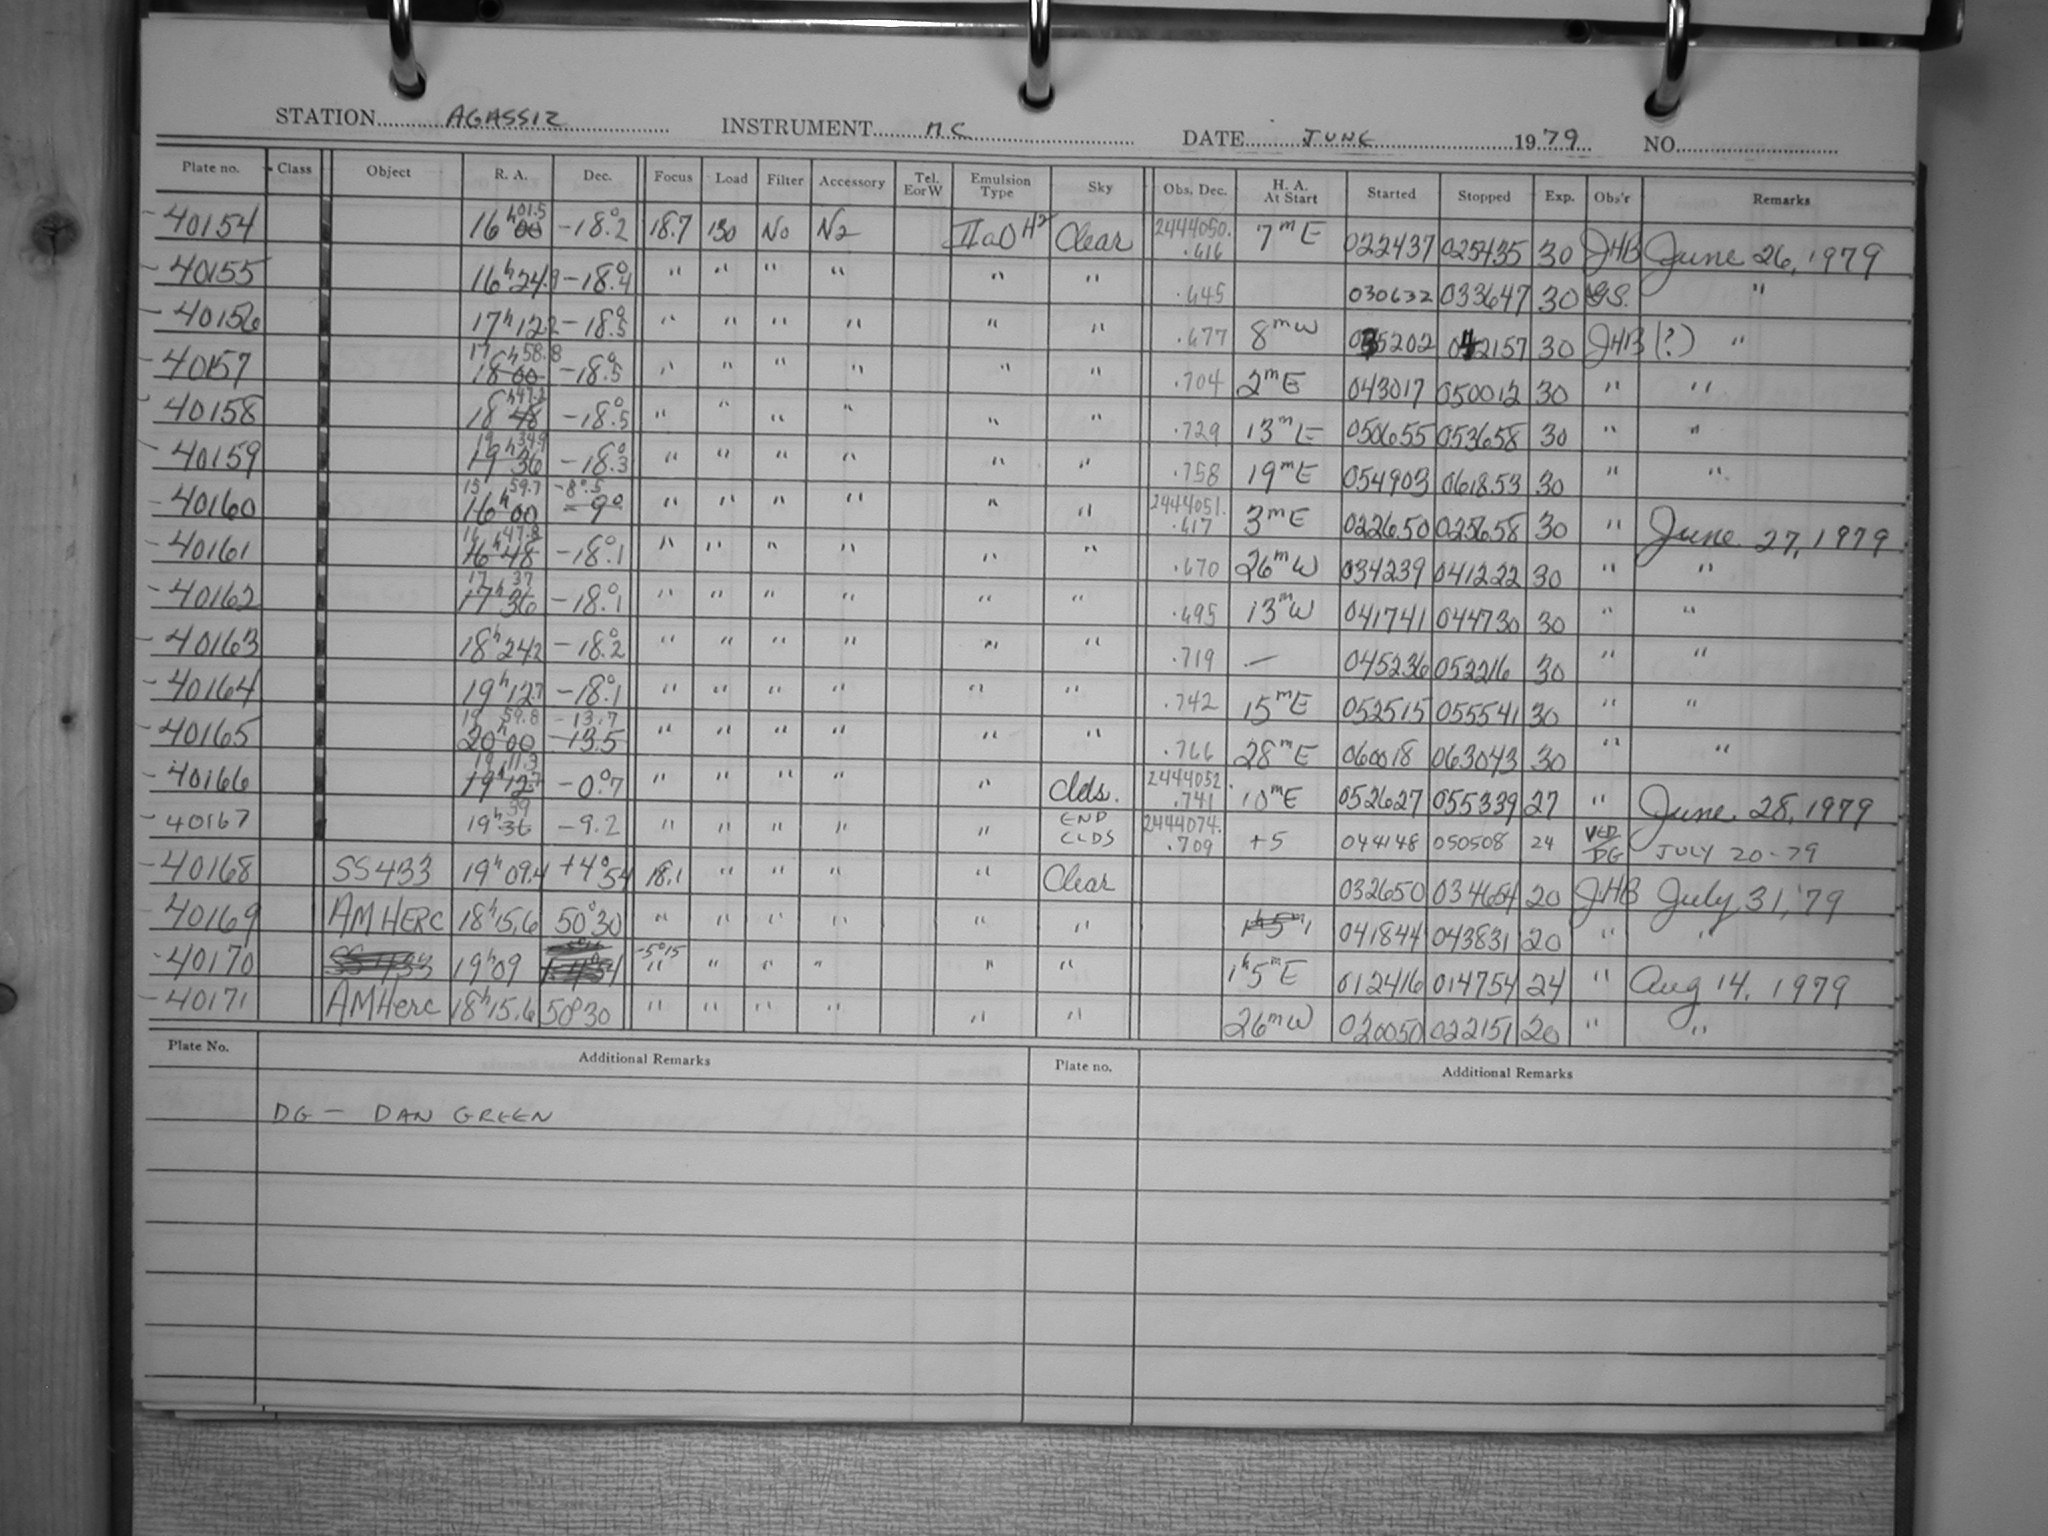 STATION AGASSIZ INSTRUMENT MC DATE JUNE 1979 NO.
Plate no. Class Object R. A. Dec. Focus Load Filter Accessory Tel. E or W Emulsion Type Sky Obs. Dec. H. A. At Start Started Stopped Exp. Obs'r Remarks
40154 16h 01.5 -18.°2 18.7 130 No N2 IIaO H2 Clear 2444050. .616 7m E 022437 025435 30 JHB June 26, 1979
40155 16h 24.9 -18.°4 " " " " " " .645 030632 033647 30 G.S. "
40156 17h 12.2 -18.°5 " " " " " " .677 8m W 035202 042157 30 JHB (?) "
40157 17h 58.8 -18.°5 " " " " " " .704 2m E 043017 050012 30 " "
40158 18h 47.2 -18.°5 " " " " " " .729 13m E 050655 053658 30 " "
40159 19h 34.9 -18.°3 " " " " " " .758 19m E 054903 061853 30 " "
40160 15 59.7 -8°.5 " " " " " " 2444051. .617 3m E 022650 025658 30 " June 27, 1979
40161 16h 47.8 -18.°1 " " " " " " .670 26m W 034239 041222 30 " "
40162 17h 37 -18.°1 " " " " " " .695 13m W 041741 044730 30 " "
40163 18h 24.2 -18.°2 " " " " " " .719 — 045236 052216 30 " "
40164 19h 12.7 -18.°1 " " " " " " .742 15m E 052515 055541 30 " "
40165 19 59.8 -13.7 " " " " " " .766 28m E 060018 063043 30 " "
40166 19 11.3 -0.°7 " " " " " Clds. 2444052. .741 10m E 052627 055339 27 " June 28, 1979
40167 19h 39 -9.2 " " " " " END CLDS 2444074. .709 +5 044148 050508 24 VED/DG JULY 20-79
40168 SS433 19h 09.4 +4°54 18.1 " " " " Clear 032650 034654 20 JHB July 31, '79
40169 AM HERC 18h 15.6 50°30 " " " " " " 041844 043831 20 " "
40170 19h 09 -5°15 " " " " " " 1h 5m E 012416 014754 24 " Aug 14, 1979
40171 AM Herc 18h 15.6 50°30 " " " " " " 26m W 020050 022151 20 " "
Plate No. Additional Remarks Plate no. Additional Remarks
DG — DAN GREEN